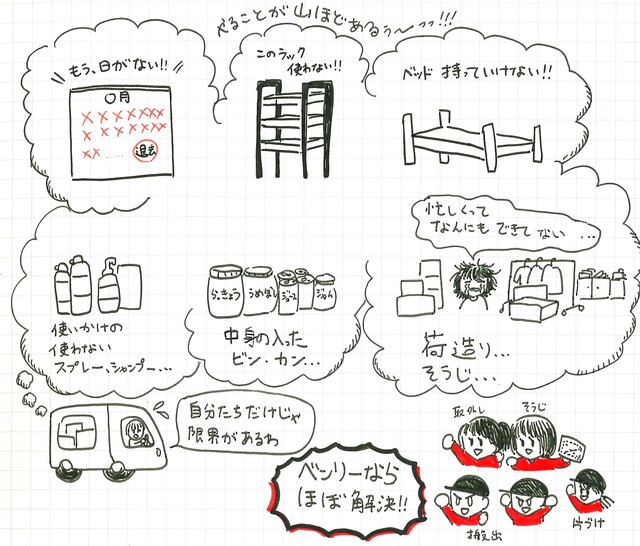 やることが山ほどあるぅ〜っっ!!!
もう、日がない!!
〇月
退去
このラック
使わない!!
ベッド 持っていけない!!
忙しくって
なんにもできてない…
使いかけの
使わない
スプレー、シャンプー…
らっきょう
うめぼし
ジュース
ジャム
中身の入った
ビン・カン…
荷造り…
そうじ…
自分たちだけじゃ
限界があるわ
ベンリーなら
ほぼ解決!!
取外し
そうじ
搬出
片づけ